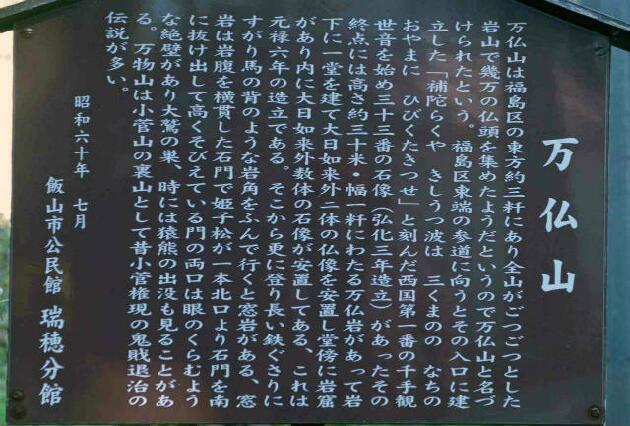 万仏山
万仏山は福島区の東方約三粁にあり全山がごつごつとした
岩山で幾万の仏頭を集めたようだというので万仏山と名づ
けられたという。福島区東端の参道に向うとその入口に建
立した「補陀らくや　きしうつ波は　三くまのの　なちの
おやまに　ひびくたきつせ」と刻んだ西国第一番の千手観
世音を始め三十三番の石像（弘化三年造立）があったその
終点には高さ約三十米・幅一粁にわたる万仏岩があって岩
下に一堂を建て大日如来外二体の仏像を安置し堂傍に岩窟
があり内に大日如来外数体の石像が安置してある、これは
元禄六年の造立である。そこから更に登り長い鉄ぐさりに
すがり馬の背のような岩角をふんで行くと窓岩がある、窓
岩は岩腹を横貫した石門で姫子松が一本北口より石門を南
に抜け出して高くそびえている門の両口は眼のくらむよう
な絶壁があり大鷲の巣、時には猿熊の出没も見ることがあ
る。万物山は小菅山の裏山として昔小菅権現の鬼賊退治の
伝説が多い。
昭和六十年　七月
飯山市公民館　瑞穂分館